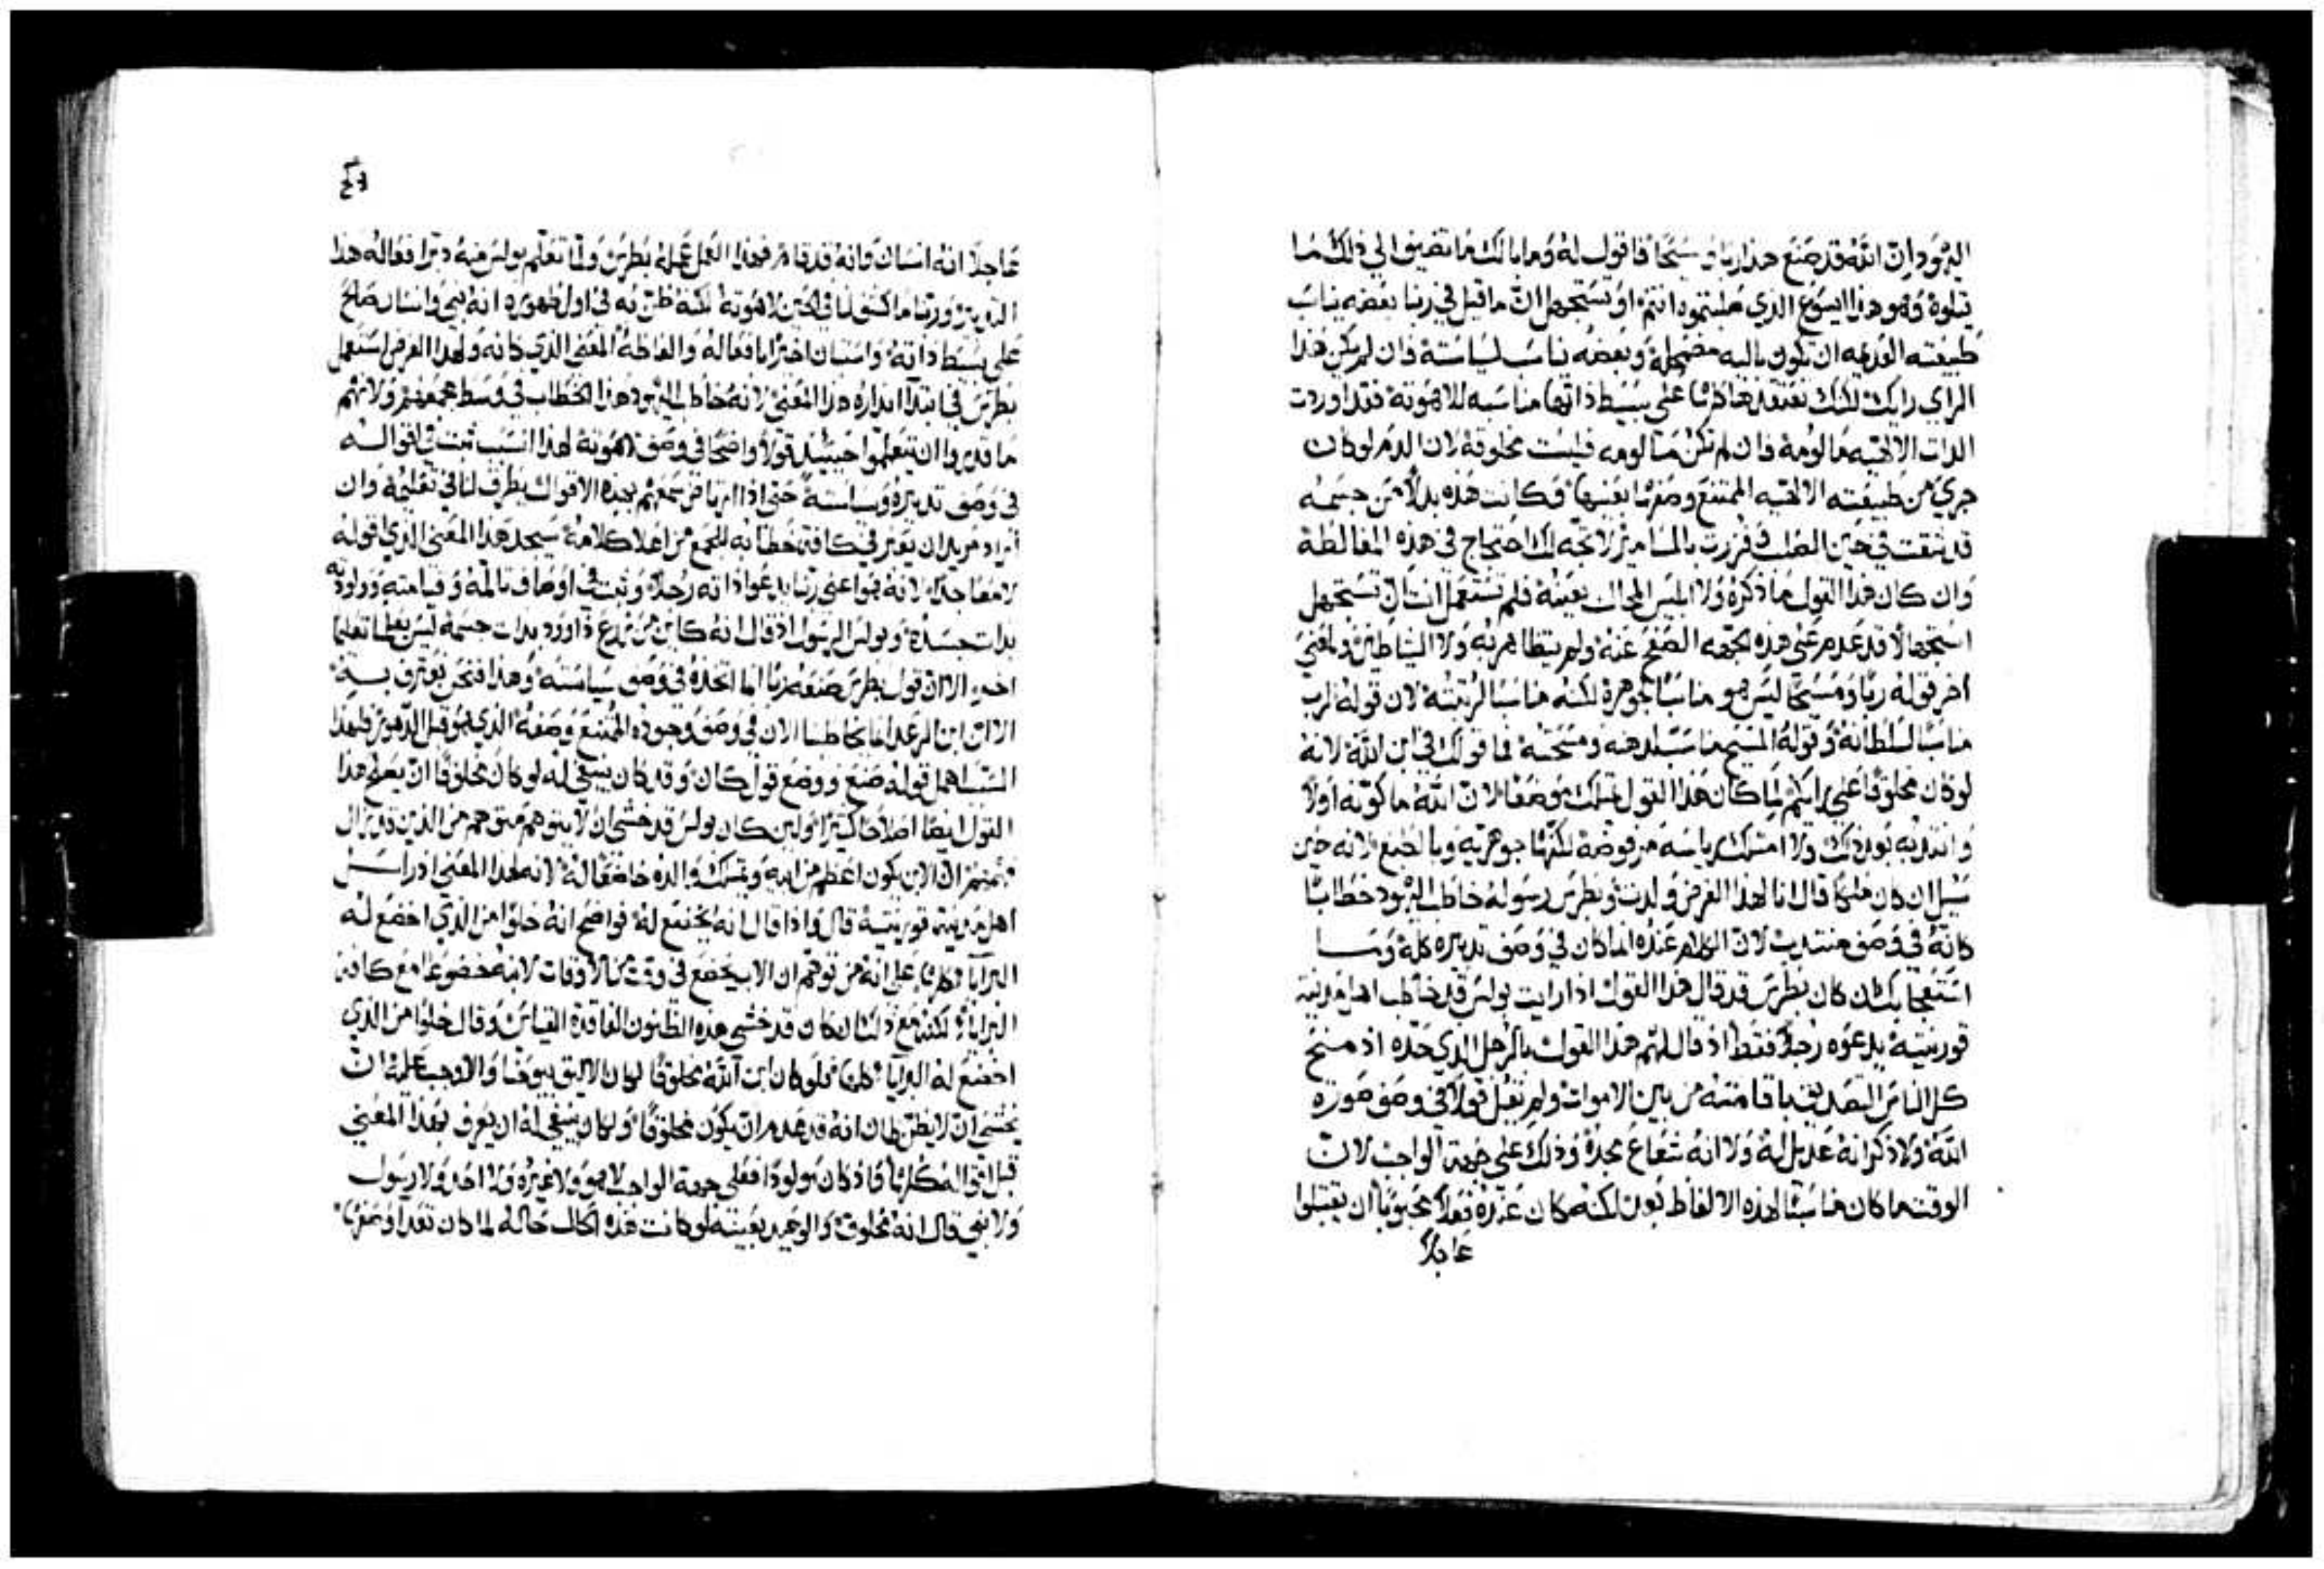 اليهود ان الله قد صنع هذا ربا ومسيحا فاقول له وما بالك ما تضيف الى ذلك ما
يتلوه وهو هذا ايسوع الذي صلبتموه انتم او تستجهل ان ما قيل في ربنا بعضه يناسب
طبيعته العديمه ان تكون باليه مضمحله وبعضه يناسب لسياسته فان لم يكن هذا
الراي رايك لكنك تعتقد على بسيط ذاتها مناسبه للاهوته فقد اوردت
الذات الالهيه مالومه فان لم تكن متالومه فليست مخلوقه لان الدم لو كان
جري من طبيعته الالهيه الممتنع وصفها نفسها وكانت هذه بدلا من جسمه
قد ثقبت في حين الصلب وفرزت بالمسامير لاتجه لك احتجاج في هذه المغالطة
وان كان هذا القول ما ذكره ولا ابليس المحال بعينه فلم تستعمل انت ان تستجهل
استجهالا قد عدم على هذه الجهه الصفح عنه ولم يتظاهر به ولا الشياطين ولمعنى
اخر قوله ربا ومسيحا ليس هو مناسبا لجوهره لكنه مناسبا لرتبته لان قوله لرب
مناسبا لسلطانه وقوله المسيح مناسب لدهنه ومسحته فما قولك في ابن الله لانه
لو كان مخلوقا على رايكم لما كان هذا القول تملك موضعا لان الله ما كونه اولا
وانتدبه بعد ذلك ولا امتلك رياسه مرفوضة لكنها جوهريه وبالطبع لانه حين
سيل ان كان ملكا قال انا لهذا الغرض ولدت وبطرس رسوله خاطب اليهود خطابا
كانه في وصف منتدب لان الكلام عنده انما كان في وصف تدبيره كله وما
استعجابك ان كان بطرس قد قال هذا القول اذا رايت بولس قد خاطب اهل مدينة
قورنتية يدعوه رجلا فقط اذ قال لهم هذا القول بالرجل الذي حده اذ منح
كل الناس التصديق باقامته من بين الاموات ولم يقل قولا في وصف صورة
الله ولا ذكر انه عديل له ولا انه شعاع مجده وذلك على جهة الواجب لان
الوقت ما كان مناسبا لهذه الالفاظ بعد لكنه كان عنده فعلا محبوبا ان يقبلوا
عاجلا
عاجلا انه انسان وانه قد قام فهذا العمل عمله بطرس ولما تعلم بولس منه دبر افعاله هذا
التدبير وربنا ما كشف لنا في الحين لاهوته لكنه ظن به في اول ظهوره انه نبي وانسان صالح
على بسط ذاته واستبان اخيرا بافعاله والفاظه المعنى الذي كانه ولهذا الغرض استعمل
بطرس في ابتدا انذاره هذا المعنى لانه خاطب اليهود هذا الخطاب في وسط مجمعهم ولانهم
ما قدروا ان يتعلموا حينيذ قولا واضحا في وصف لاهوته لهذا السبب ثبت في اقواله
في وصف تدبيره وسياسته حتى اذا ارتاض سمعهم بهذه الاقوال يطرق لنا في تعليمه وان
اراد مريد ان يقتري كافة خطابه للجمع من اعلا كلامه سيجد هذا المعنى الذي اقوله
لامعا جدا لانه هو اعني ربنا يدعوا ذاته رجلا وثبت في اوصاف تالمه وقيامته وولودته
بذات جسده وبولس الرسول اذ قال انه كاين من زرع داوود بذات جسمه ليس يعلمنا تعليما
اخر الا ان قول بطرس صنعه ربا انما اتخذه في وصف سياسته وهذا فنحن نعترف به
الا ان ابن الرعد انما يخاطبنا الان في وصف وجوده الممتنع وصفه الذي هو قبل الدهور فلهذا
السبب اهمل قوله صنع ووضع قول كان وقد كان ينبغي له لو كان مخلوقا ان يصلح هذا
القول ايضا اصلاحا كثيرا ولين كان بولس قد خشي ان لا يتوهم متوهم من الذين قد زال
تمييزهم ان الابن يكون اعظم من ابيه ويمتلك والده خاضعا له لانه لهذا المعنى اذ راسل
اهل مدينة قورنتية قال واذا قال انه يخضع له فواضح انه خلوا من الذي اخضع له
البرايا كلها على انه من توهم ان الاب يخضع في وقت من الاوقات لابنه خضوعا مع كافة
البرايا لكنه مع ذلك ان كان قد خشي هذه الظنون الفاقدة القياس وقال خلوا من الذي
اخضع له البرايا كلها فلو كان ابن الله مخلوقا لكان الاليق بيوحنا والاوجب عليه ان
يخشى ان لا يظن ظان انه قد عدم ان يكون مخلوقا ولكان ينبغي له ان يعرف بهذا المعنى
قبل اقواله كلها فاذ كان مولودا فعلى جهة الواجب لا هو ولا غيره ولا احد ولا رسول
ولا نبي قال انه مخلوق والوحيد بعينه لو كانت هذه الحال حاله لما كان تعدا وصفها